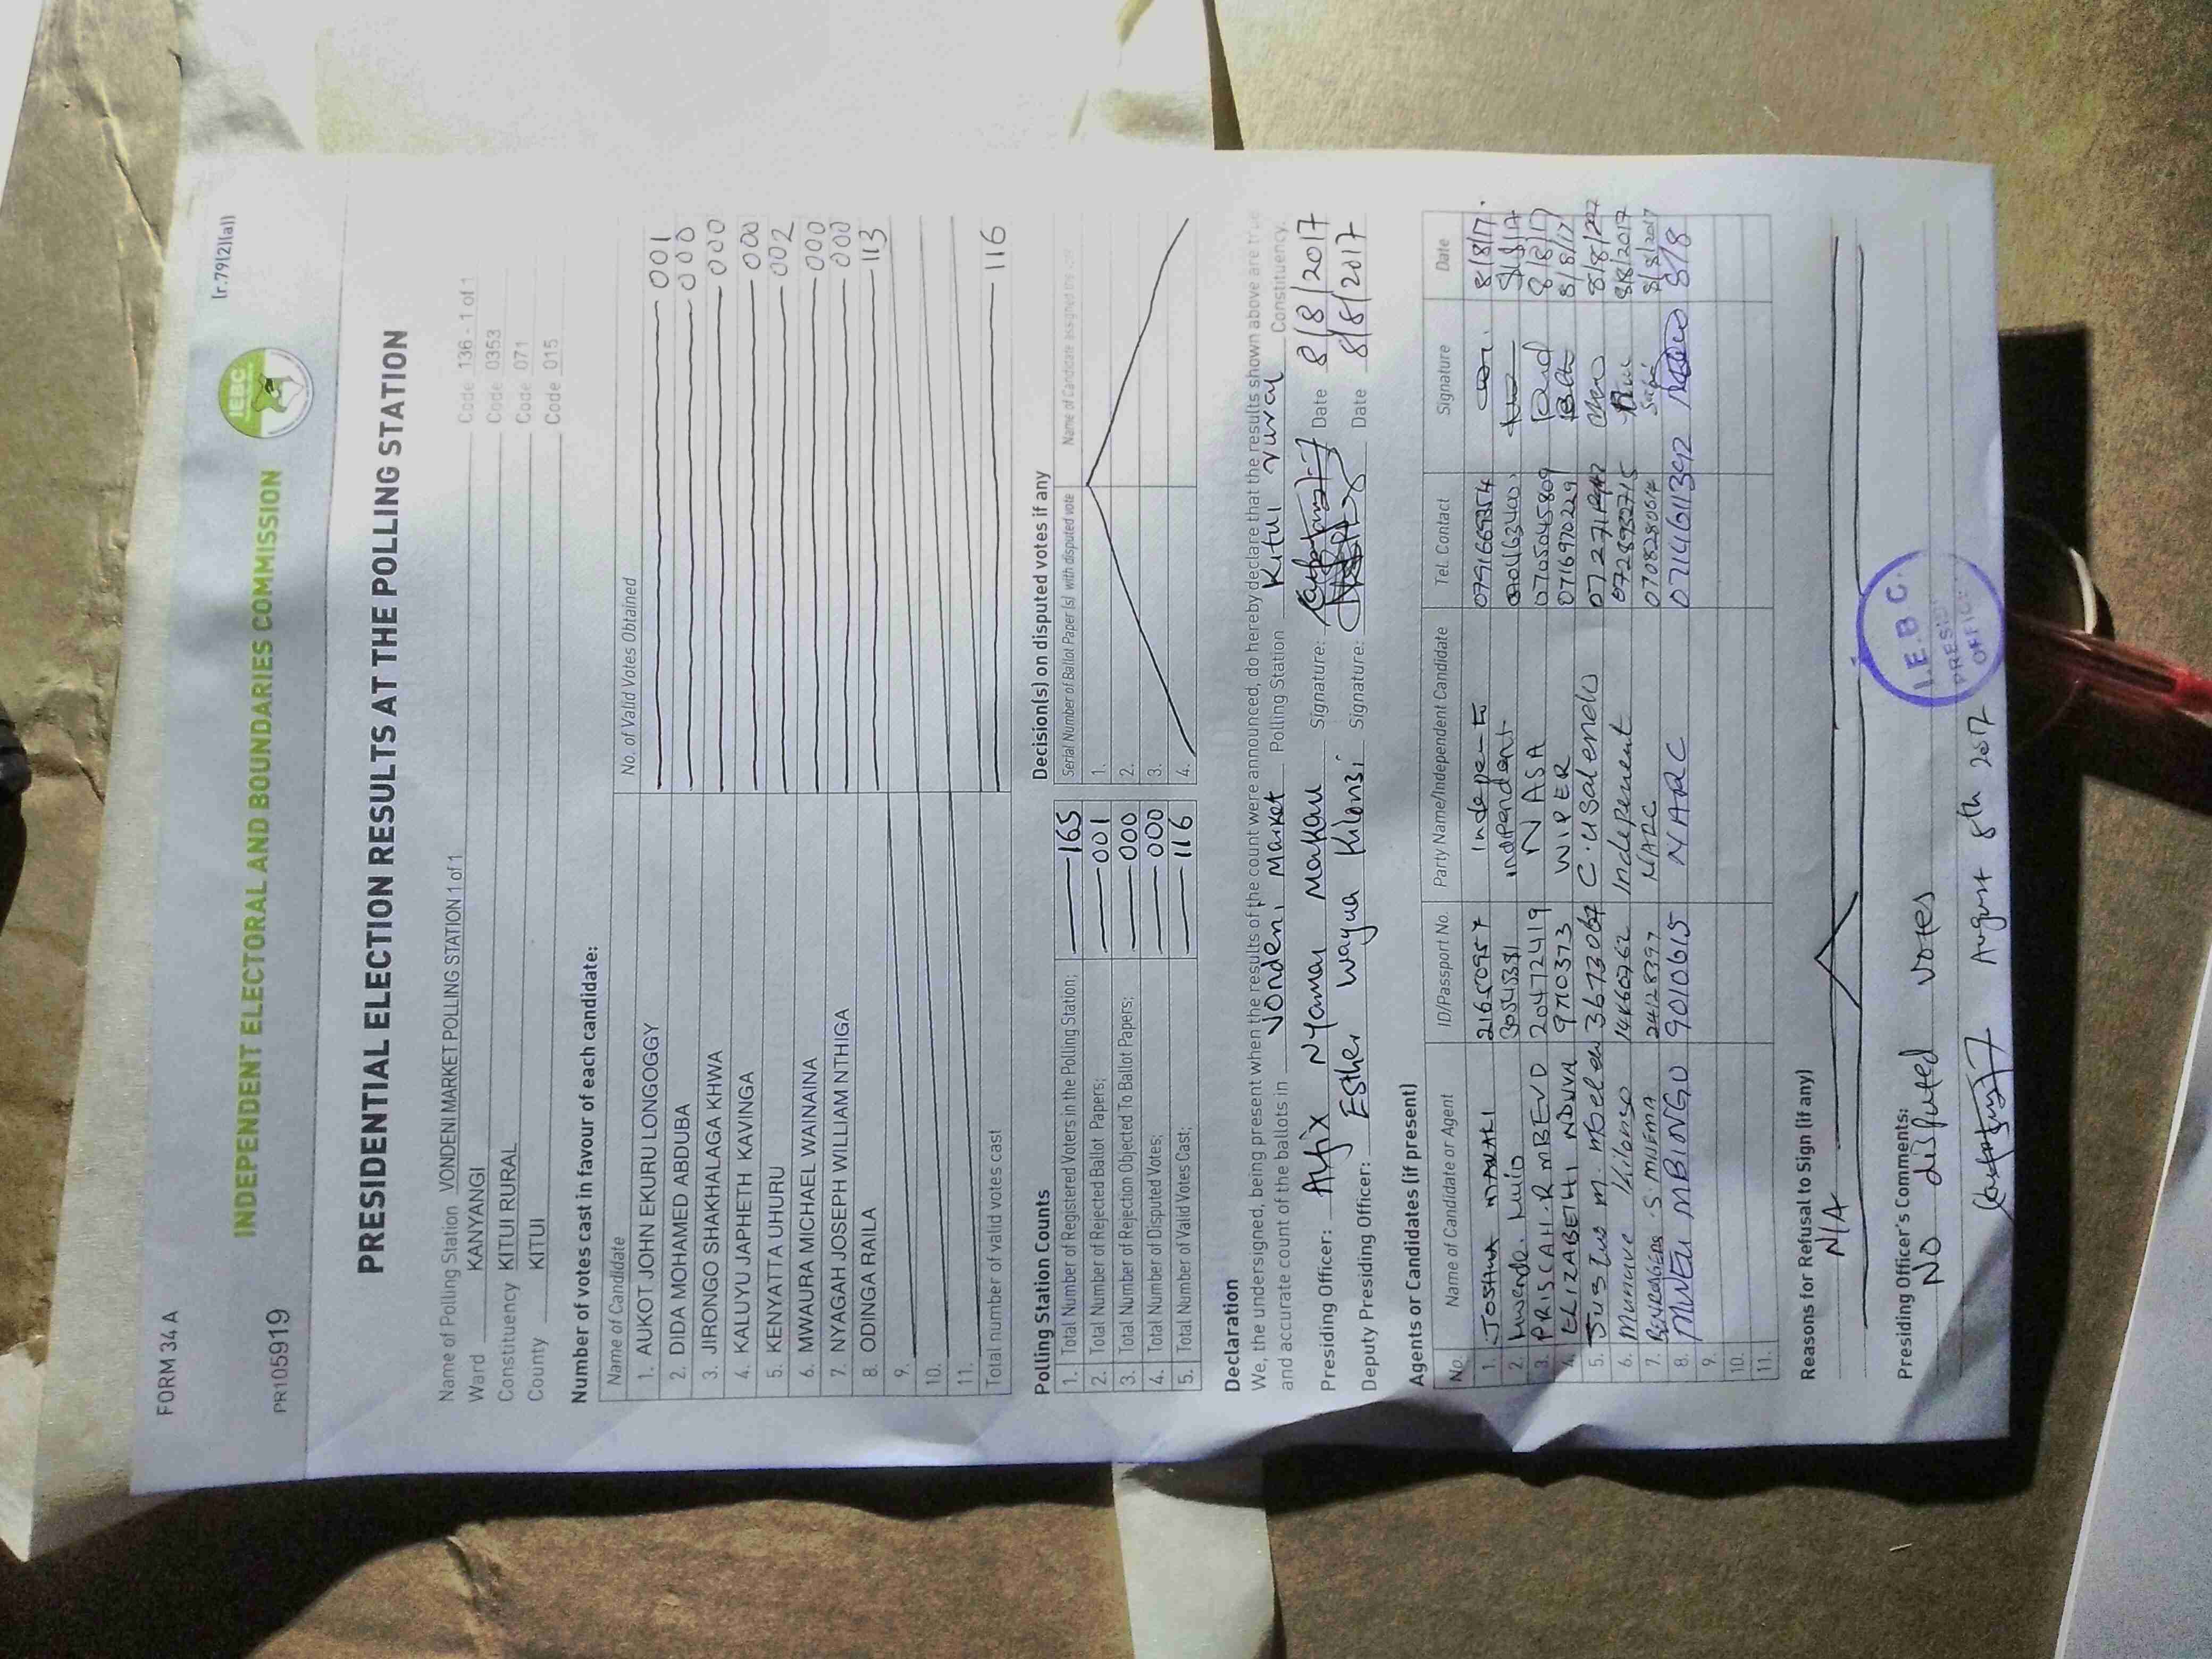 FORM 34 A
[r.79(2)(a)]
IEBC
INDEPENDENT ELECTORAL AND BOUNDARIES COMMISSION
PR105919
PRESIDENTIAL ELECTION RESULTS AT THE POLLING STATION
Name of Polling Station VONDENI MARKET POLLING STATION 1 of 1 Code 136 - 1 of 1
Ward KANYANGI Code 0353
Constituency KITUI RURAL Code 071
County KITUI Code 015
Number of votes cast in favour of each candidate:
Name of Candidate No. of Valid Votes Obtained
1. AUKOT JOHN EKURU LONGOGGY 001
2. DIDA MOHAMED ABDUBA 000
3. JIRONGO SHAKHALAGA KHWA 000
4. KALUYU JAPHETH KAVINGA 000
5. KENYATTA UHURU 002
6. MWAURA MICHAEL WAINAINA 000
7. NYAGAH JOSEPH WILLIAM NTHIGA 000
8. ODINGA RAILA 113
9.
10.
11.
Total number of valid votes cast 116
Polling Station Counts
1. Total Number of Registered Voters in the Polling Station; 165
2. Total Number of Rejected Ballot Papers; 001
3. Total Number of Rejection Objected To Ballot Papers; 000
4. Total Number of Disputed Votes; 000
5. Total Number of Valid Votes Cast; 116
Decision(s) on disputed votes if any
Serial Number of Ballot Paper (s) with disputed vote Name of Candidate assigned the vote
1.
2.
3.
4.
Declaration
We, the undersigned, being present when the results of the count were announced, do hereby declare that the results shown above are true
and accurate count of the ballots in Vondeni Market Polling Station Kitui rural Constituency.
Presiding Officer: Nyamai Makau Signature: Date 8/8/2017
Deputy Presiding Officer: Esther Wayua Kilonzi Signature: Date 8/8/2017
Agents or Candidates (if present)
No. Name of Candidate or Agent ID/Passport No. Party Name/Independent Candidate Tel. Contact Signature Date
1. JOSHUA 8/8/17
2. independent
3. PRISCAH . R MBEVO 20472419 NASA 0705045809 8/8/17
4. ELIZABETH NDUVA 9710373 WIPER 0716970229 8/8/17
5. Justus M.
6. Kilonzo Independent 8/8/2017
7. S. MUEMA 24128397 NARC 0708280614 8/8/2017
8. MWEU MBINGU 9010615 NARC 0714611392 8/8
9.
10.
11.
Reasons for Refusal to Sign (if any)
N/A
Presiding Officer's Comments:
No disputed votes
August 8th 2017
I.E.B.C.
PRESIDI
OFFICE